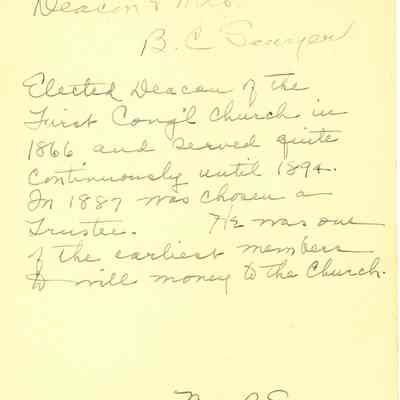 Deacon & Mrs.
B. C. Sawyer
Elected Deacon of the
First Cong'l Church in
1866 and served quite
continuously until 1894.
In 1887 was chosen a
Trustee. He was one
of the earliest members
to will money to the Church.